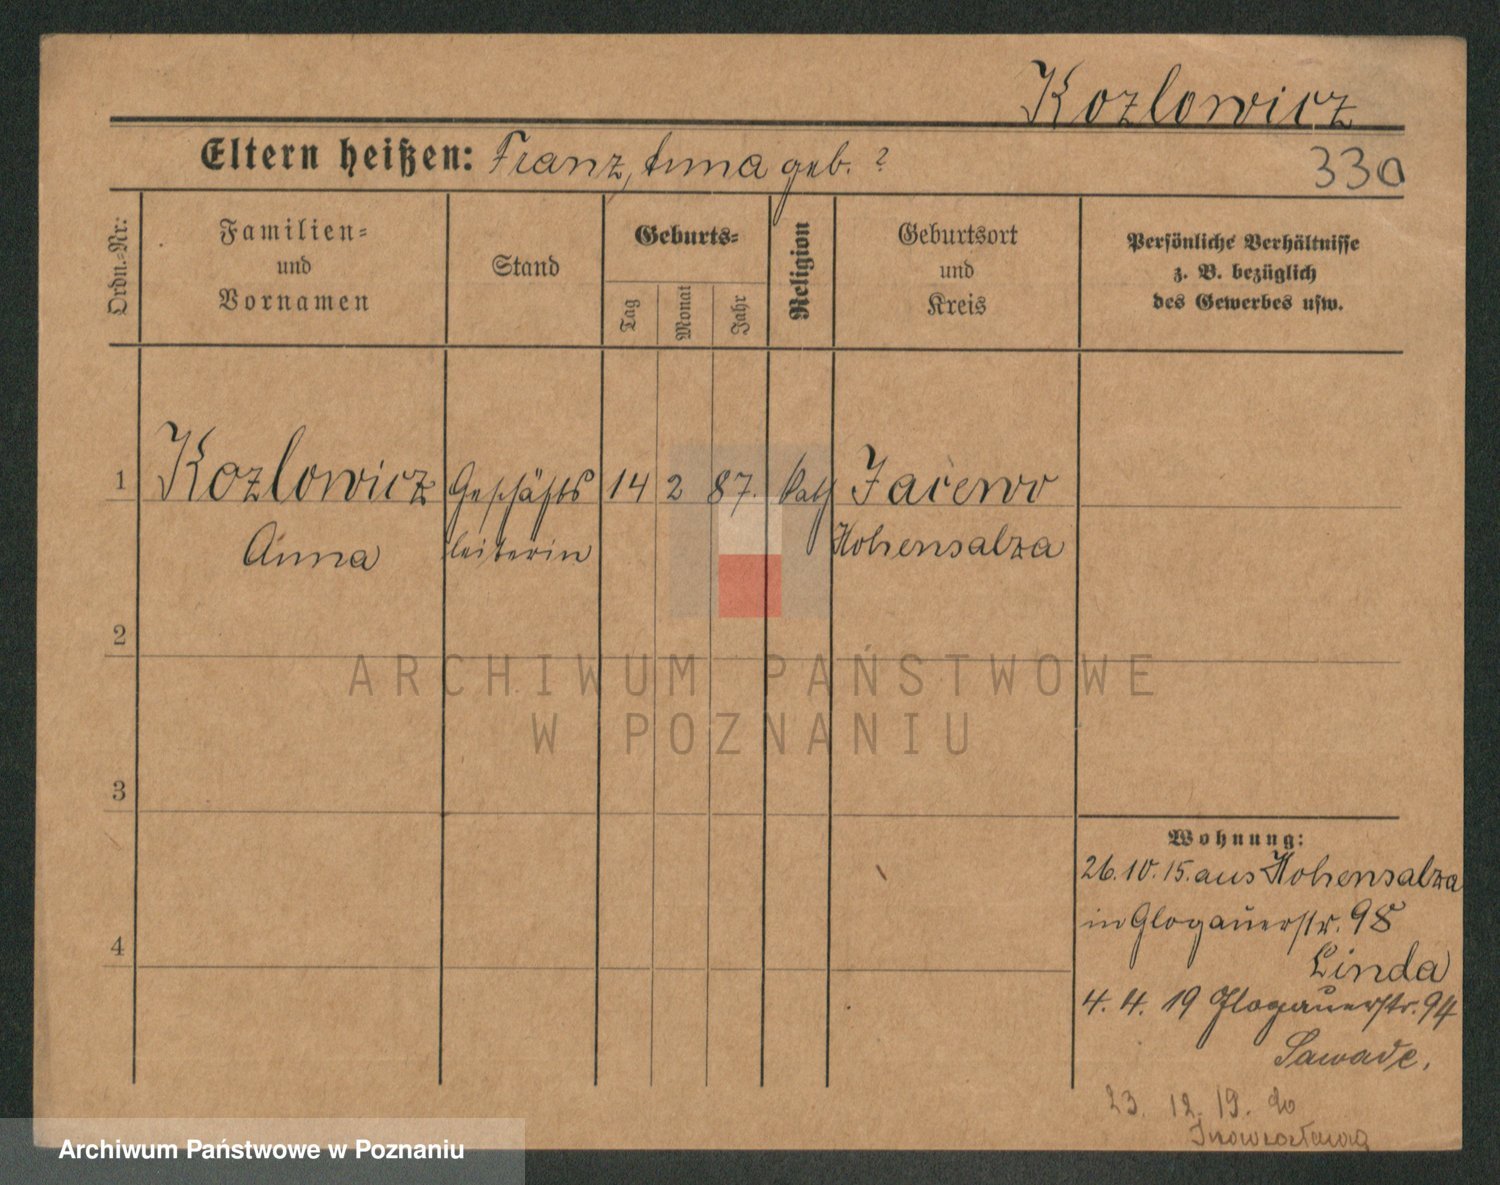 Kozlowicz
Eltern heißen: Franz, Anna geb. ?
330
Ordn.-Nr:
Familien-
und
Vornamen
Stand
Geburts-
Tag
Monat
Jahr
Religion
Geburtsort
und
Kreis
Persönliche Verhältnisse
z. B. bezüglich
des Gewerbes usw.
1 Kozlowicz Geschäfts 14 2 87. kath Jacewo
Anna leiterin Hohensalza
2
ARCHIWUM PAŃSTWOWE
W POZNANIU
3
Wohnung:
26.10.15. aus Hohensalza
in Glogauerstr. 98
4
Linda
4. 4. 19 Glogauerstr. 94
Sawade.
23. 12. 19. do
Inowrocławia
Archiwum Państwowe w Poznaniu